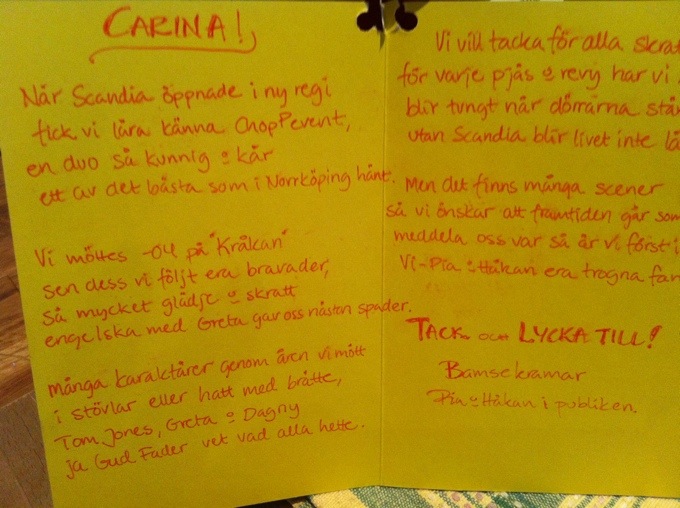 CARINA!
När Scandia öppnade i ny regi
fick vi lära känna ChopPevent,
en duo så kunnig o kär
ett av det bästa som i Norrköping hänt.
Vi möttes -04 på "Kråkan"
sen dess vi följt era bravader,
så mycket glädje o skratt
engelska med Greta gav oss nästan spader.
många karaktärer genom åren vi mött
i stövlar eller hatt med brätte,
Tom Jones, Greta o Dagny
ja Gud Fader vet vad alla hette.
Vi vill tacka för alla skrat
för varje pjäs o revy har vi
blir tungt när dörrarna stä
utan Scandia blir livet inte lä
Men det finns många scener
så vi önskar att framtiden går som
meddela oss var så är vi först i
Vi-Pia o Håkan era trogna fan
TACK och LYCKA TILL!
Bamsekramar
Pia o Håkan i publiken.